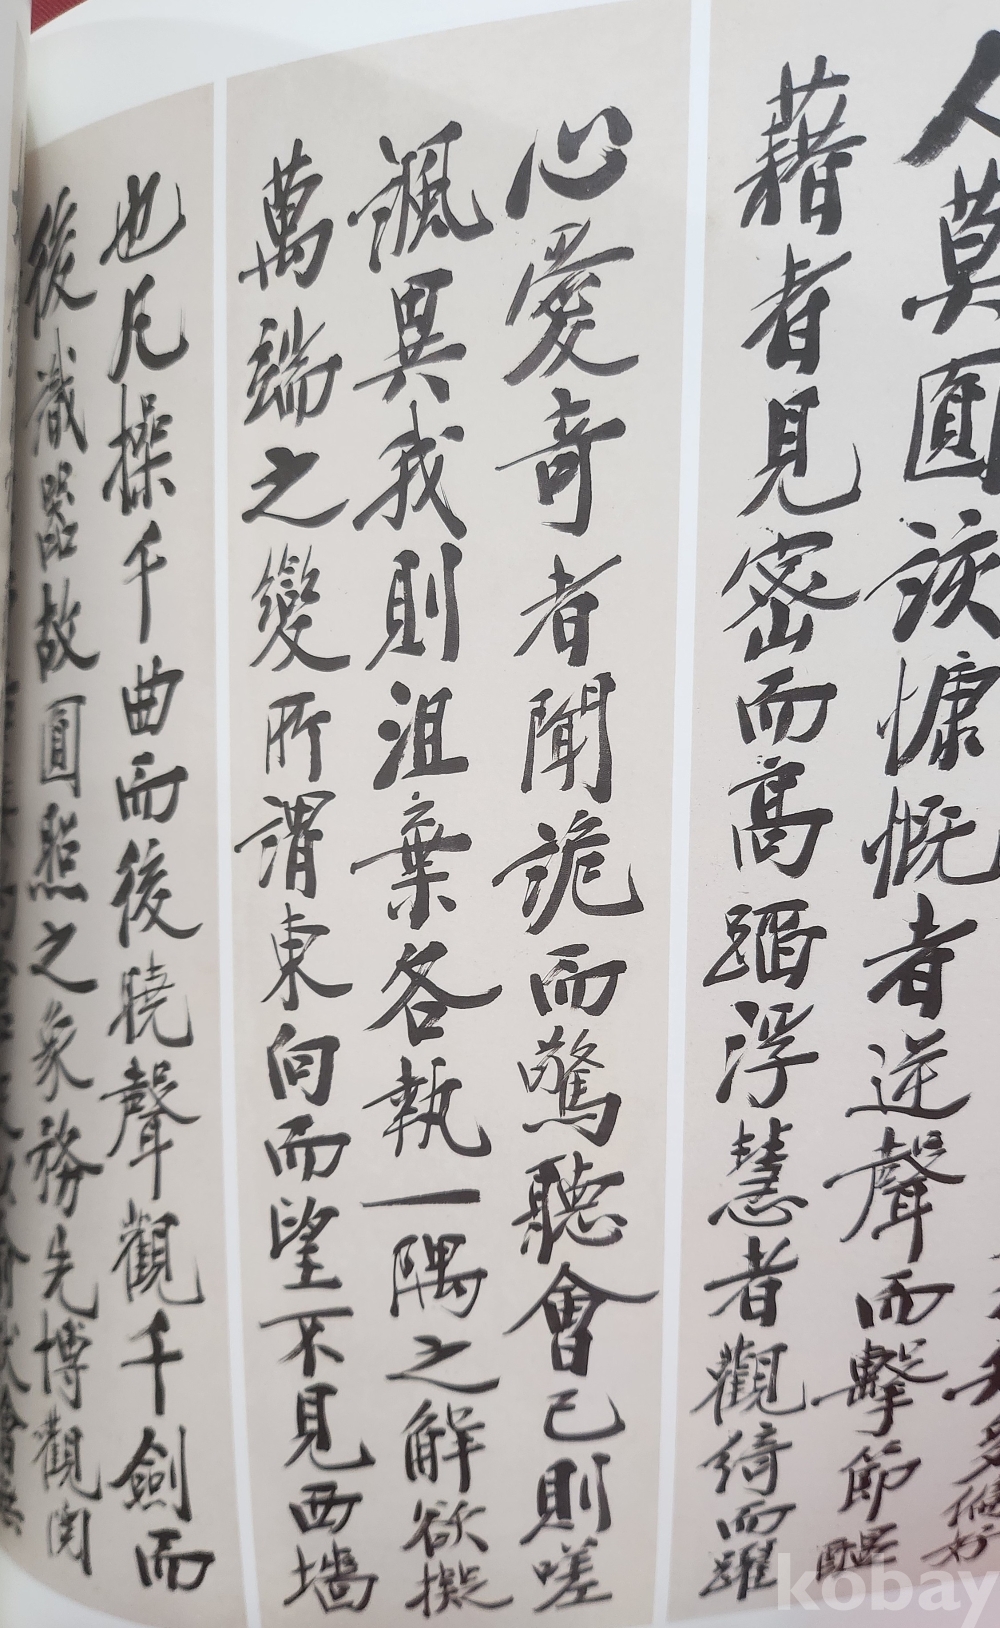 知多偏好
人莫圓該慷慨者逆聲而擊節醞
藉者見密而高蹈浮慧者觀綺而躍
心愛奇者聞詭而驚聽會己則嗟
諷異我則沮棄各執一隅之解欲擬
萬端之變所謂東向而望不見西墻
也凡操千曲而後曉聲觀千劍而
後識器故圓照之象務先博觀閱
kobay